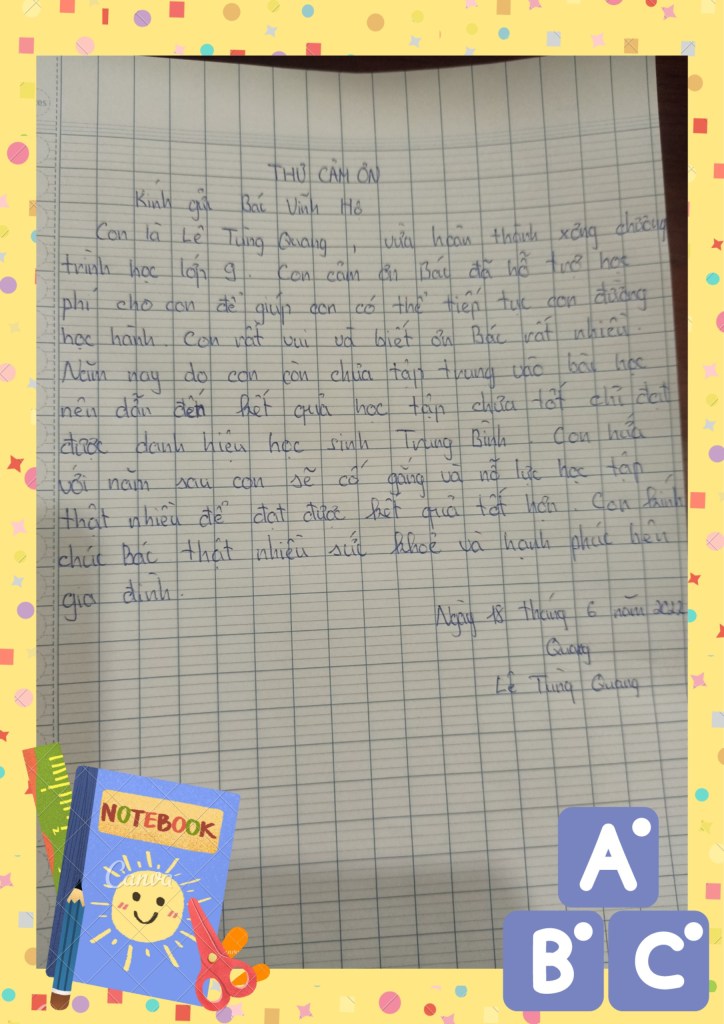 THƯ CẢM ƠN
Kính gửi Bác Vĩnh Hồ
Con là Lê Tùng Quang, vừa hoàn thành xong chương
trình học lớp 9. Con cảm ơn Bác đã hỗ trợ học
phí cho con để giúp con có thể tiếp tục con đường
học hành. Con rất vui và biết ơn Bác rất nhiều.
Năm nay do con còn chưa tập trung vào bài học
nên dẫn đến kết quả học tập chưa tốt chỉ đạt
được danh hiệu học sinh Trung Bình. Con hứa
với năm sau con sẽ cố gắng và nỗ lực học tập
thật nhiều để đạt được kết quả tốt hơn. Con kính
chúc Bác thật nhiều sức khoẻ và hạnh phúc bên
gia đình.
Ngày 18 tháng 6 năm 2022
Quang
Lê Tùng Quang
NOTEBOOK
Canva
A
B C